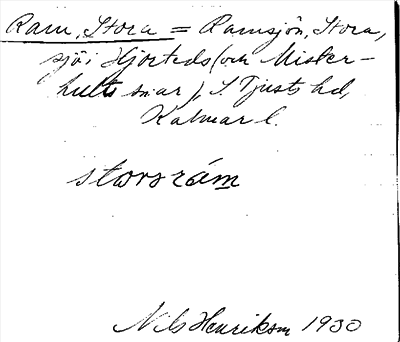 Ram, Stora = Ramsjön, Stora,
sjö i Hjorteds (och Mister-
hults snar), S. Tjusts hd,
Kalmar l.
stororám
Nils Henrikson 1930